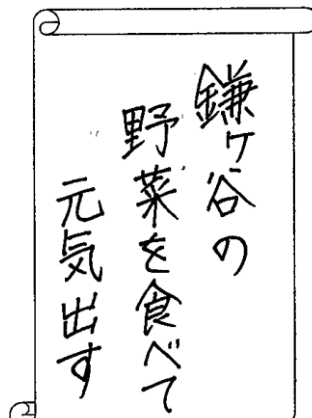 鎌ヶ谷の
野菜を食べて
元気出す